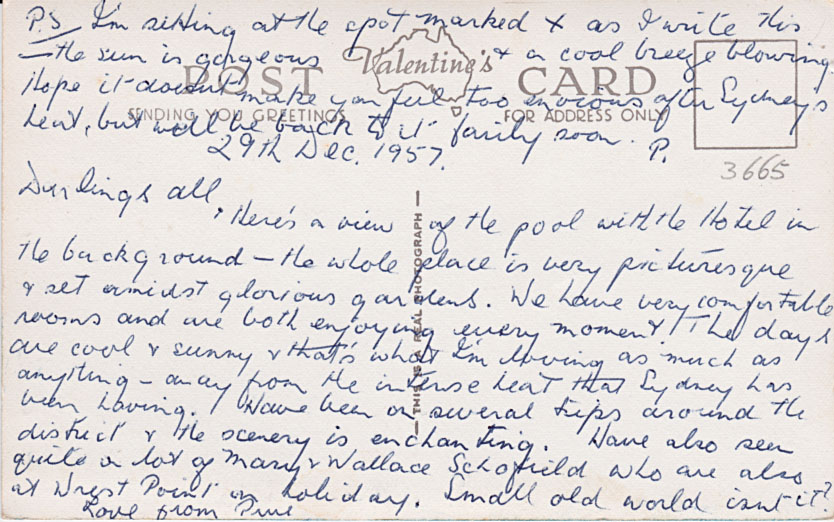 P.S. I'm sitting at the spot marked X as I write this
— the sun is gorgeous & a cool breeze blowing.
Hope it doesn't make you feel too envious after Sydney's
heat, but will be back to it fairly soon. P.
POST CARD
Valentine's
SENDING YOU GREETINGS
FOR ADDRESS ONLY
3665
29th Dec. 1957.
Darlings all,
Here's a view of the pool with the Hotel in
the background — the whole place is very picturesque
& set amidst glorious gardens. We have very comfortable
rooms and are both enjoying every moment. The days
are cool & sunny & that's what I'm loving as much as
anything — away from the intense heat that Sydney has
been having. Have been on several trips around the
district & the scenery is enchanting. Have also seen
quite a lot of Mary & Wallace Schofield who are also
at Wrest Point on holiday. Small old world isn't it?
Love from
THIS IS A REAL PHOTOGRAPH